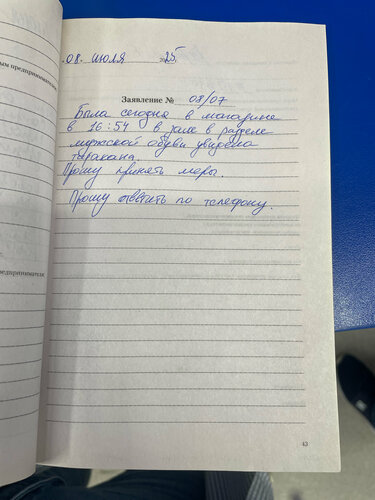 ым предпринимателем
08. июля 25
Заявление № 08/07
Была сегодня в магазине
в 16:54 в зале в разделе
мужской обуви увидела
таракана.
Прошу принять меры.
Прошу ответить по телефону.
редпринимателя
43